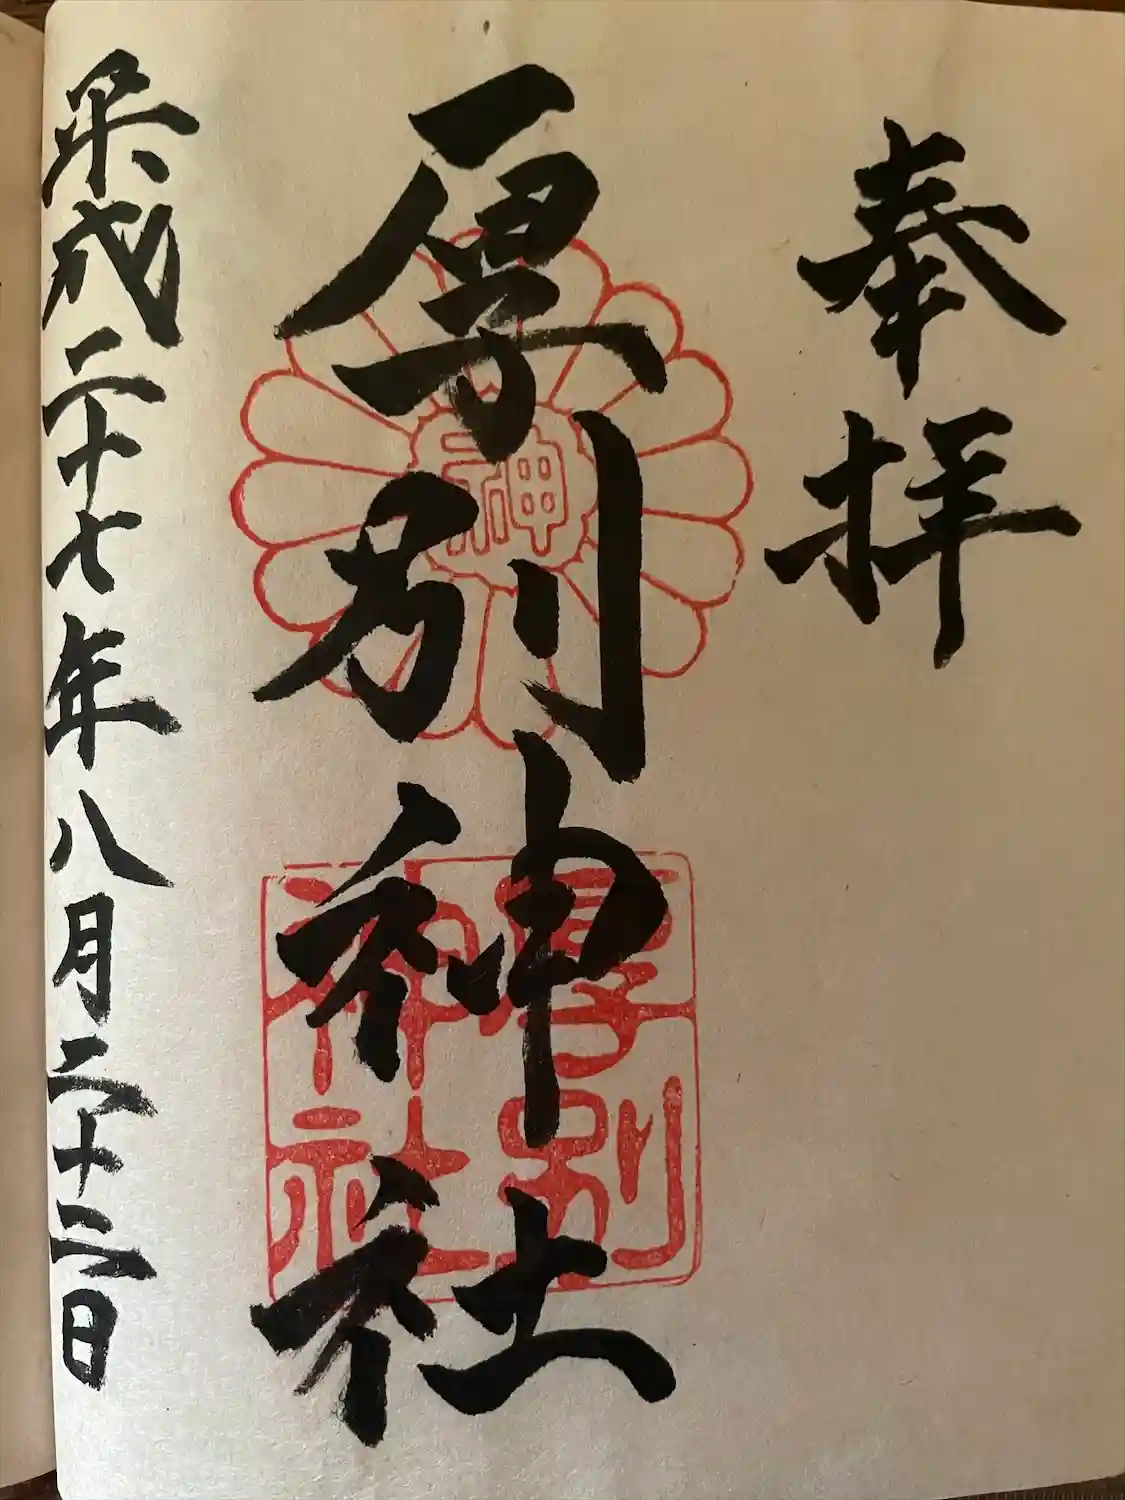 奉拝
厚別神社
神
厚別
神社
平成二十七年八月二十三日